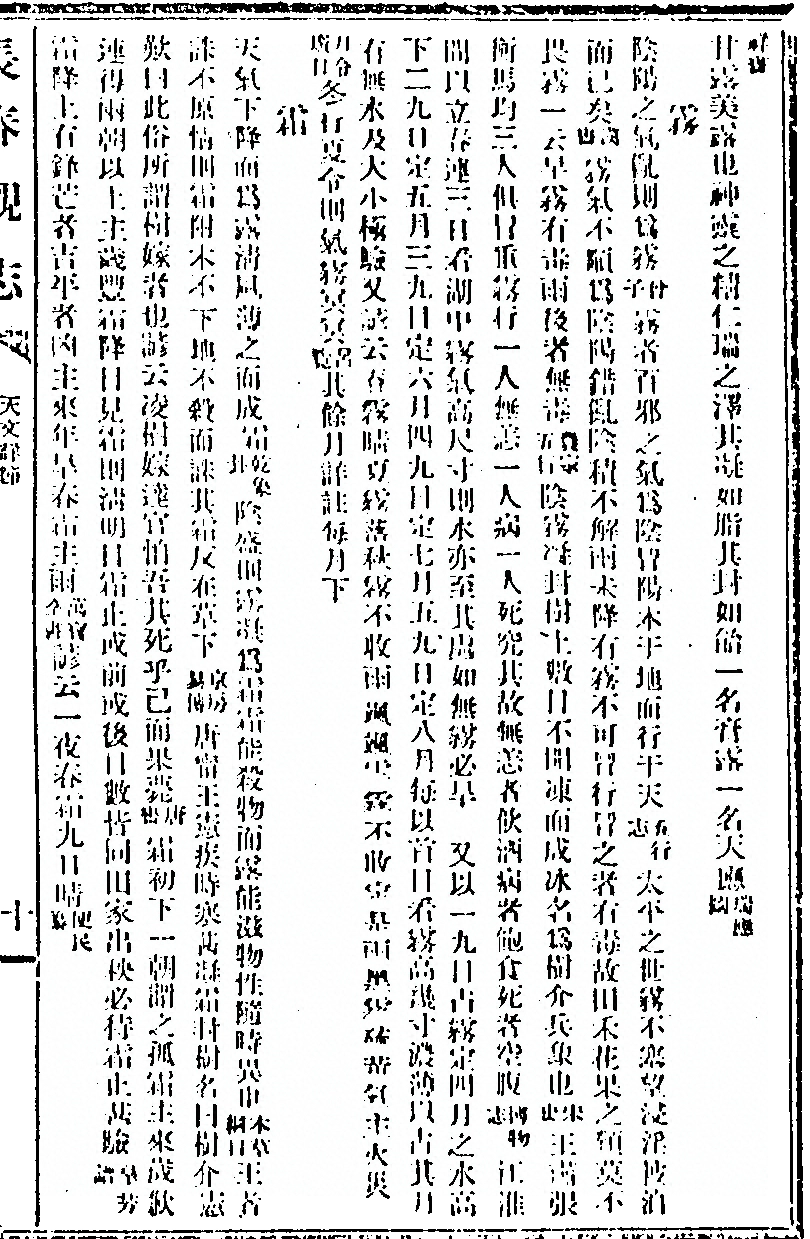 甘露美露也神靈之精仁瑞之澤其凝如脂其甘如飴一名膏露一名天酒瑞應圖
霧
陰陽之氣亂則爲霧 霧者百邪之氣爲陰冒陽本于地而行于天五行志 太平之世霧不塞望浸淫被泊
而已矣 霧氣不順爲陰陽錯亂陰積不解雨未降有霧不可冒行冒之者有毒故田禾花果之類莫不
畏霧一云旱霧有毒雨後者無毒農家五行 陰霧凝封樹上數日不開凍而成冰名爲樹介兵象也宋史 王肅張
衡馬均三人俱冒重霧行一人無恙一人病一人死究其故無恙者飲酒病者飽食死者空腹博物志 江淮
間以立春連三日看湖中霧氣高尺寸則水亦至其處如無霧必旱 又以一九日占霧定四月之水高
下二九日定五月三九日定六月四九日定七月五九日定八月每以首日看霧高幾寸濃薄以占其月
有無水及大小極驗又諺云春霧晴夏霧落秋霧不收雨
月令廣日 冬行夏令則氣霧冥冥 其餘月詳註每月下
霜
天氣下降而爲露淸風薄之而成霜乾象 陰盛則露凝爲霜霜能殺物而露能滋物性隨時異也本草綱目 王者
誅不原情則霜附木不下地不殺而誅其霜反在草下京房易傳 唐甯王憲疾時寒甚凝霜封樹名曰樹介憲
歎曰此俗所謂樹嫁者也諺云凌樹嫁達官怕吾其死乎已而果薨唐 霜初下一朝謂之孤霜主來歲歉
連得兩朝以上主歲豐霜降日見霜則淸明日霜止或前或後日數皆同田家出秧必待霜止甚驗
霜降上有鋒芒者吉平者凶主來年旱春霜主雨 諺云一夜春霜九日晴便民
長春觀志
天文
十